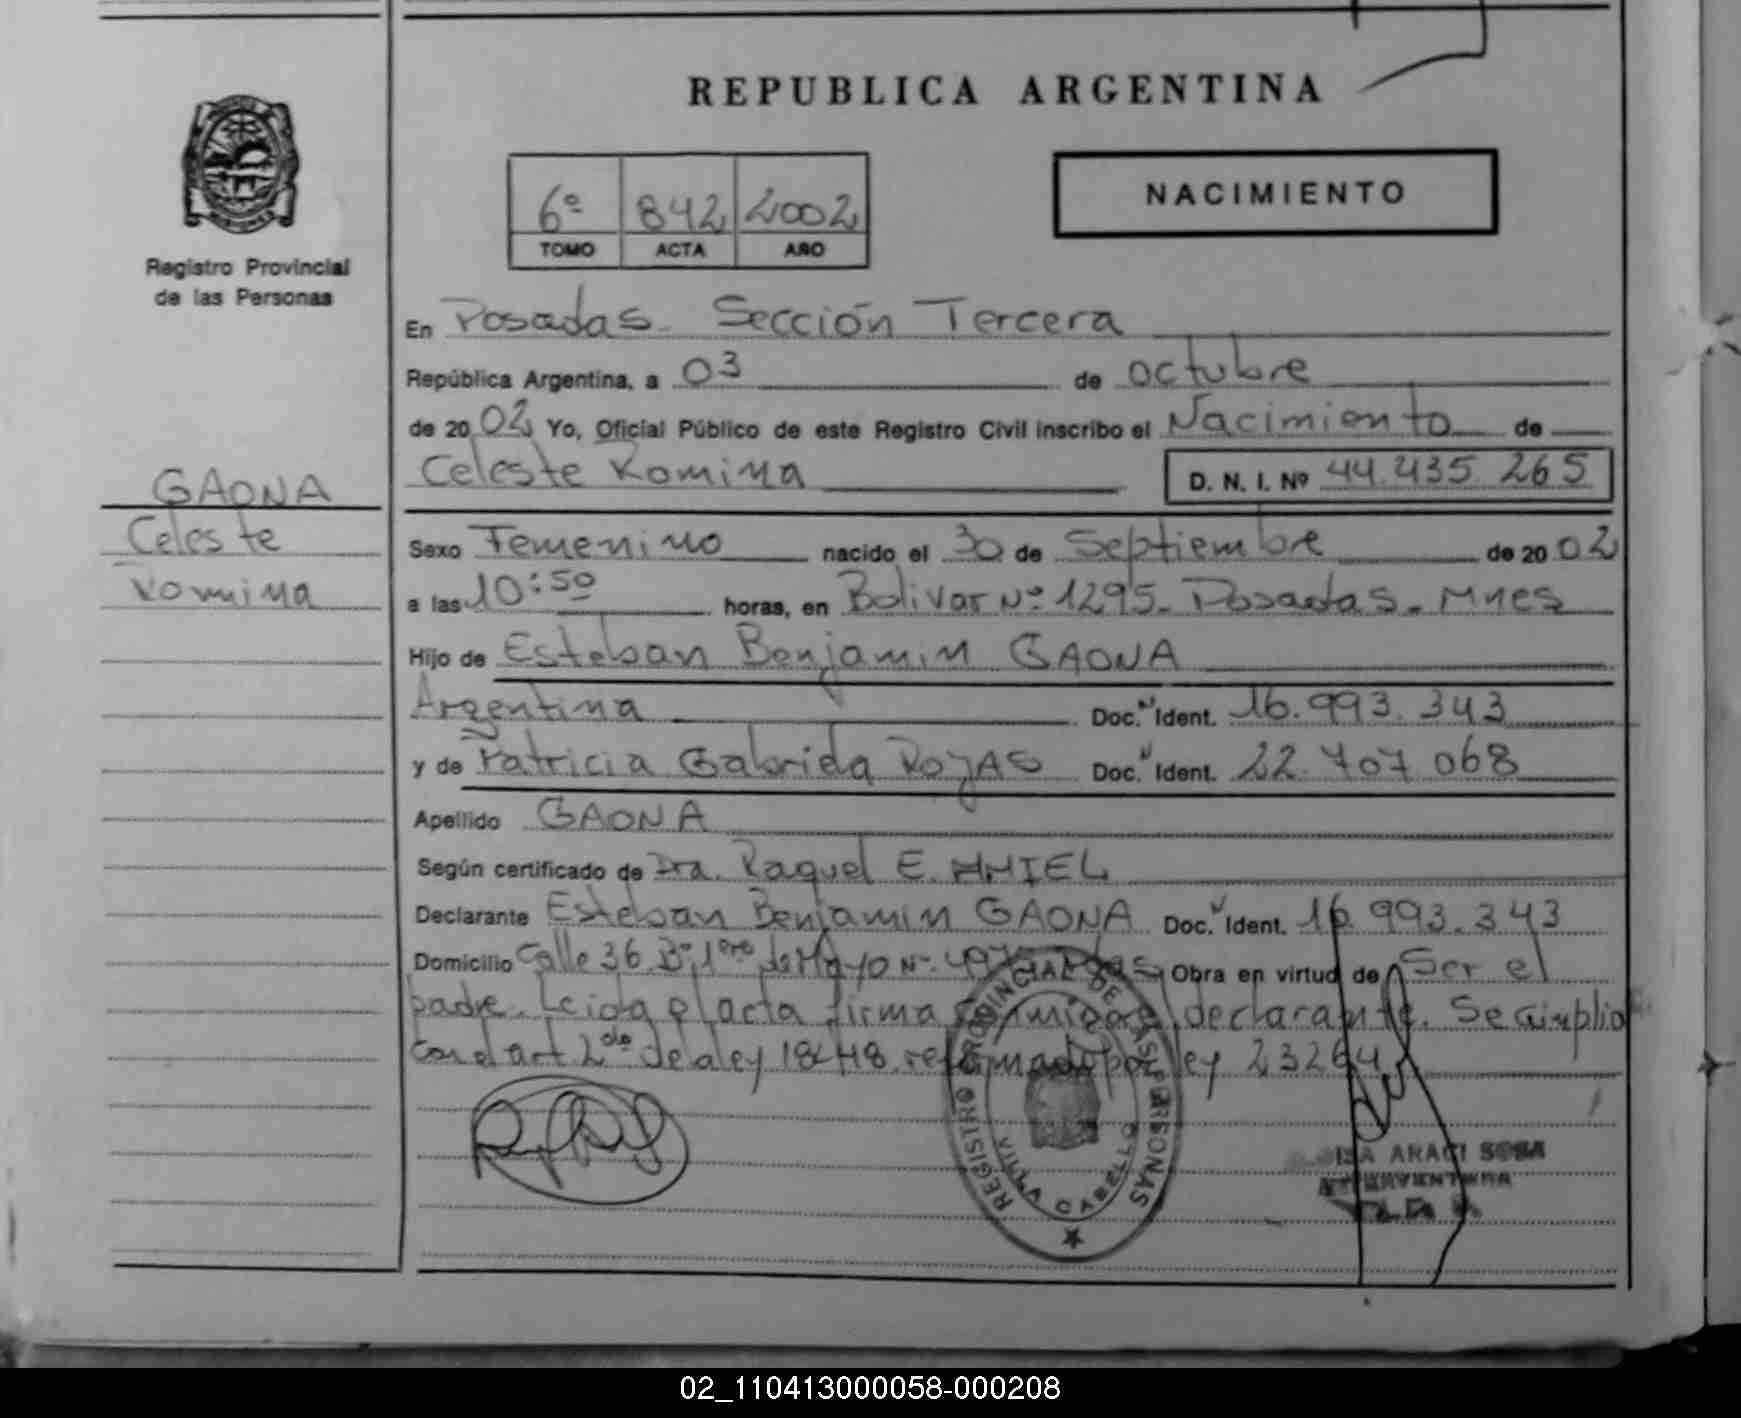 REPUBLICA ARGENTINA
NACIMIENTO
6º 842 2002
TOMO ACTA AÑO
Registro Provincial
de las Personas
GAONA
Celeste
Romina
En Posadas. Sección Tercera
República Argentina, a 03 de octubre
de 2002 Yo, Oficial Público de este Registro Civil inscribo el Nacimiento de
Celeste Romina D. N. I. Nº 44.435.265
Sexo Femenino nacido el 30 de Septiembre de 20 02
a las 10:50 horas, en Bolivar Nº 1295. Posadas. Mnes
Hijo de Esteban Benjamin GAONA
Argentina Doc. Ident. 16.993.343
y de Patricia Gabriela ROJAS Doc. Ident. 22.707.068
Apellido GAONA
Según certificado de Dra. Raquel E. AMIEL
Declarante Esteban Benjamin GAONA Doc. Ident. 16.993.343
Domicilio Calle 36 Bº 1ero de Mayo Nº Obra en virtud de Ser el
padre. Leida el acta firma declarante. Se cumplio
con el art. 2do de la ley 18248 reformado por ley 23264
REGISTRO PROVINCIAL DE LAS PERSONAS
VILLA CABELLO
ARACI SOSA
02_110413000058-000208